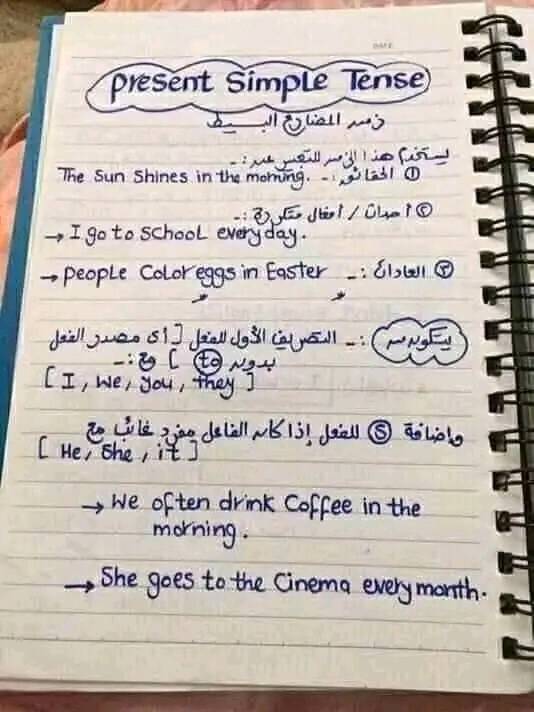 Present Simple Tense
زمن المضارع البسيط
يستخدم هذا الزمن للتعبير عن :-
① الحقائق :- The Sun Shines in the morning.
② أحداث / أفعال متكررة :-
→ I go to School everyday.
③ العادات :- → People Color eggs in Easter
يتكون من :- التصريف الأول للفعل [ أي مصدر الفعل
بدون to ] مع :-
[ I, we, you, they ]
وإضافة Ⓢ للفعل إذا كان الفاعل مفرد غائب مع
[ He, She, it ]
→ We often drink Coffee in the
morning.
→ She goes to the Cinema every month.